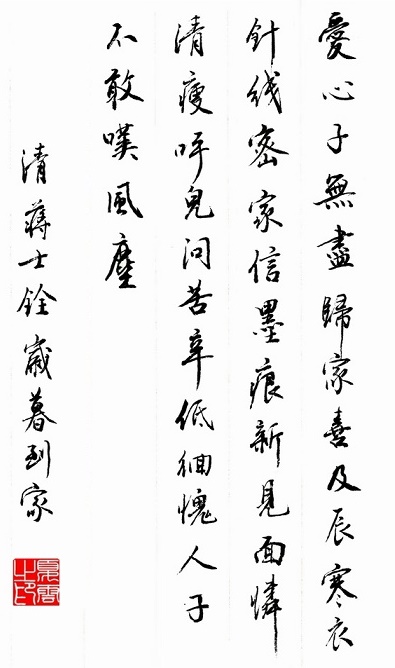 愛心子無盡歸家喜及辰寒衣
針线密家信墨痕新見面憐
清瘦呼兒问苦辛低徊愧人子
不敢嘆風塵
清蔣士銓歲暮到家